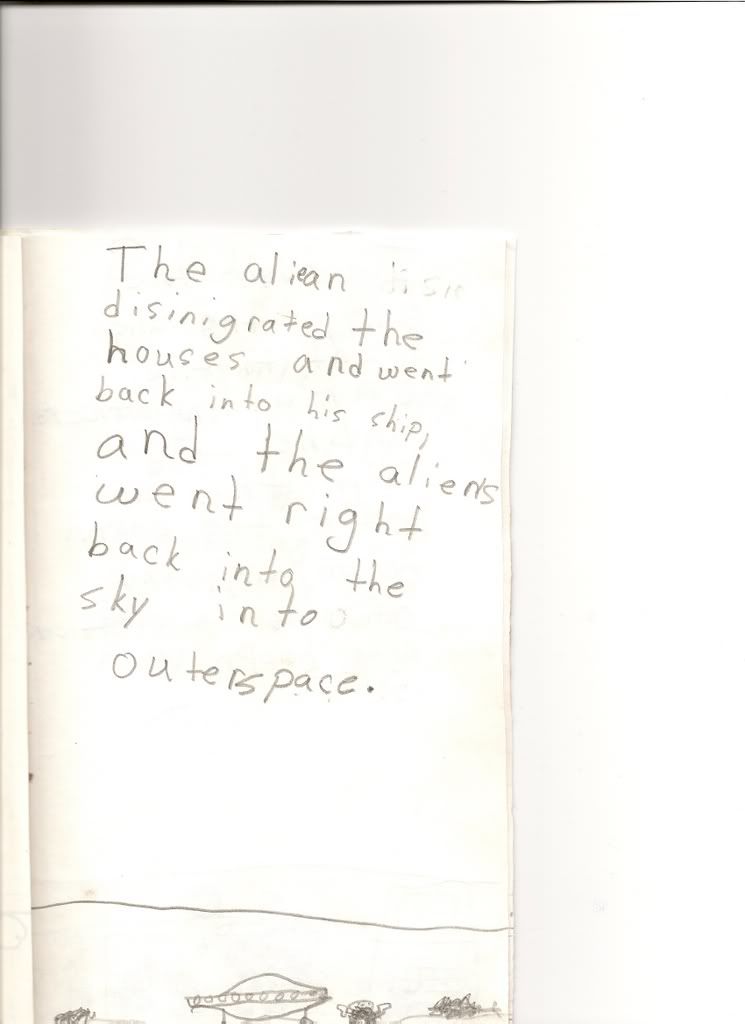 The aliean
disinigrated the
houses and went
back into his ship,
and the aliens
went right
back into the
sky into
outerspace.